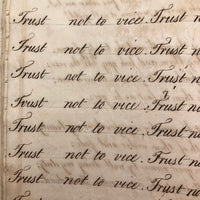 Trust not to vice. Trust n
Trust not to vice. Trust n
Trust not to vice. Trust n
Trust not to vice. Trust no
Trust not to vice. Trust no
Trust not to vice. Trust no
Trust not to vice. Trust no